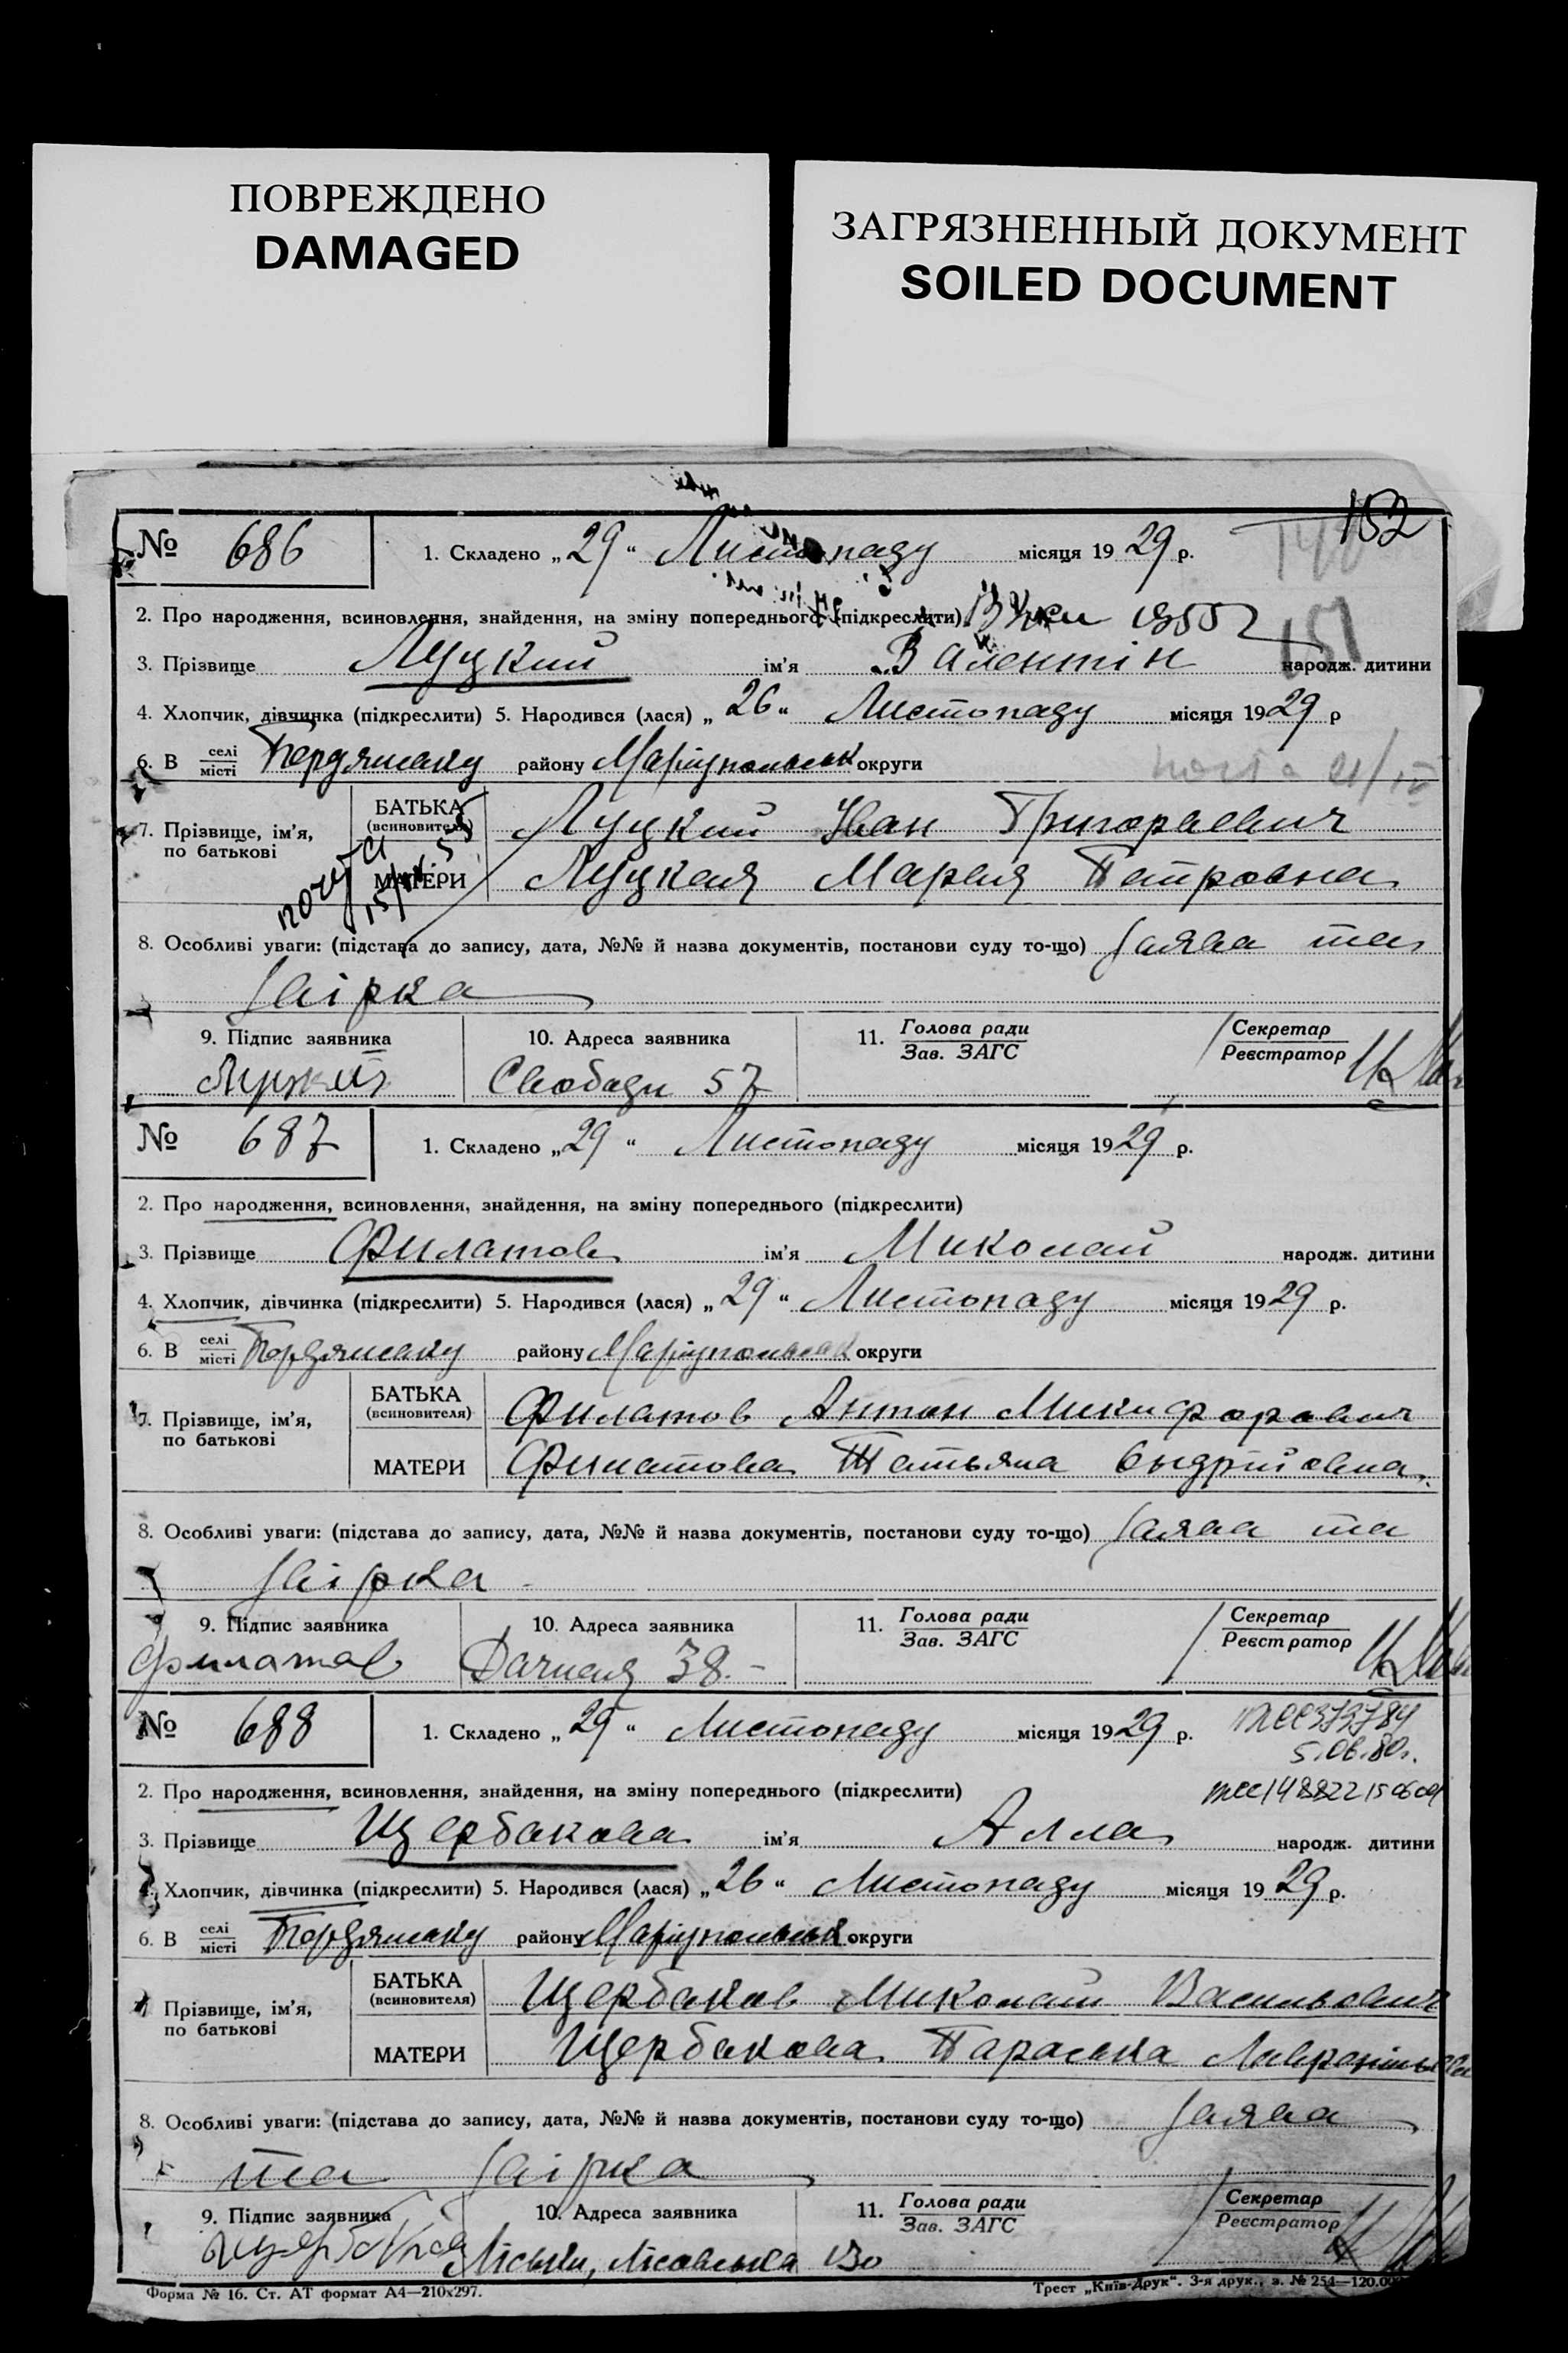 ПОВРЕЖДЕНО
DAMAGED
ЗАГРЯЗНЕННЫЙ ДОКУМЕНТ
SOILED DOCUMENT
152
151
№ 686 1. Складено „29“ Листопаду місяця 1929 р.
2. Про народження, всиновлення, знайдення, на зміну попереднього (підкреслити)
3. Прізвище Луцкий ім'я Валентін народж. дитини
4. Хлопчик, дівчинка (підкреслити) 5. Народився (лася) „26“ Листопаду місяця 1929 р
6. В селі/місті Бердянську району Маріупольськ округи
7. Прізвище, ім'я, по батькові БАТЬКА (всиновителя) Луцкий Іван Григораевич
МАТЕРИ Луцкая Мария Петровна
8. Особливі уваги: (підстава до запису, дата, №№ й назва документів, постанови суду то-що) Заява та
Звірка
9. Підпис заявника 10. Адреса заявника 11. Голова ради/Зав. ЗАГС Секретар/Реєстратор
Свободи 57
№ 687 1. Складено „29“ Листопаду місяця 1929 р.
2. Про народження, всиновлення, знайдення, на зміну попереднього (підкреслити)
3. Прізвище Филатов ім'я Миколай народж. дитини
4. Хлопчик, дівчинка (підкреслити) 5. Народився (лася) „29“ Листопаду місяця 1929 р.
6. В селі/місті Бердянську району Маріупольськ округи
7. Прізвище, ім'я, по батькові БАТЬКА (всиновителя) Филатов Антон Микифорович
МАТЕРИ Филатова Татьяна
8. Особливі уваги: (підстава до запису, дата, №№ й назва документів, постанови суду то-що) Заява та
Звірка
9. Підпис заявника 10. Адреса заявника 11. Голова ради/Зав. ЗАГС Секретар/Реєстратор
Филатов Дачная 38.-
№ 688 1. Складено „29“ Листопаду місяця 1929 р.
5.06.80г.
2. Про народження, всиновлення, знайдення, на зміну попереднього (підкреслити)
3. Прізвище Щербакова ім'я Алла народж. дитини
4. Хлопчик, дівчинка (підкреслити) 5. Народився (лася) „26“ Листопаду місяця 1929 р.
6. В селі/місті Бердянську району Маріупольськ округи
7. Прізвище, ім'я, по батькові БАТЬКА (всиновителя) Щербаков Миколай Васильович
МАТЕРИ Щербакова Параска
8. Особливі уваги: (підстава до запису, дата, №№ й назва документів, постанови суду то-що) Заява
та Звірка
9. Підпис заявника 10. Адреса заявника 11. Голова ради/Зав. ЗАГС Секретар/Реєстратор
Форма № 16. Ст. АТ формат А4—210х297.
Трест „Київ-Друк“. 3-я друк., з. № 254—120.00